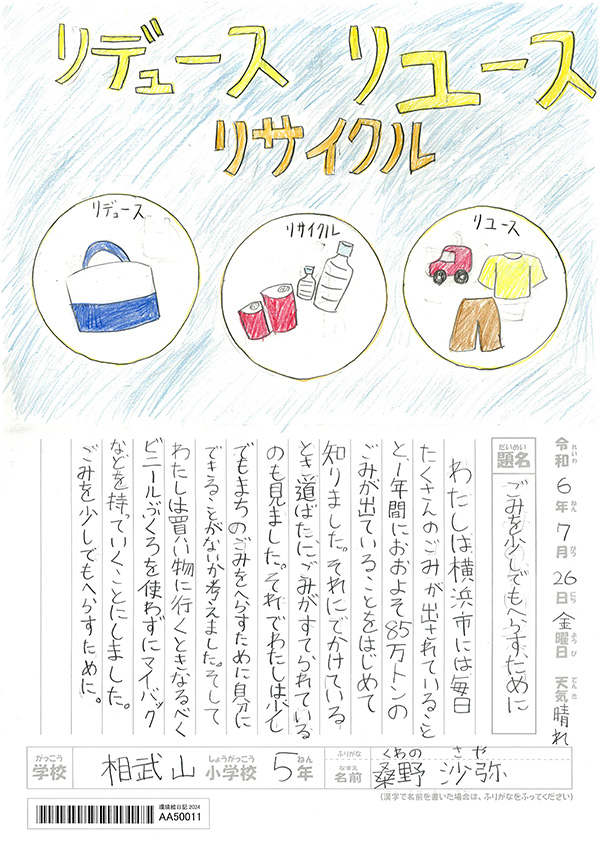 リデュース リユース
リサイクル
リデュース
リサイクル
リユース
令和6年7月26日金曜日 天気晴れ
れいわ ねん がつ にち ようび てんき
だいめい
題名
ごみを少しでもへらすために
わたしは横浜市には毎日
たくさんのごみが出されていること
と、1年間におおよそ85万トンの
ごみが出ていることをはじめて
知りました。それにでかけている
とき道ばたにごみがすてられている
のも見ました。それでわたしは少し
でもまちのごみをへらすために自分に
できることがないか考えました。そして
わたしは買い物に行くときなるべく
ビニールぶくろを使わずにマイバック
などを持っていくことにしました。
ごみを少しでもへらすために。
がっこう しょうがっこう ねん
学校 相武山 小学校 5年
ふりがな くわの さや
なまえ
名前 桑野 沙弥
(漢字で名前を書いた場合は、ふりがなをふってください)
環境絵日記 2024
AA50011